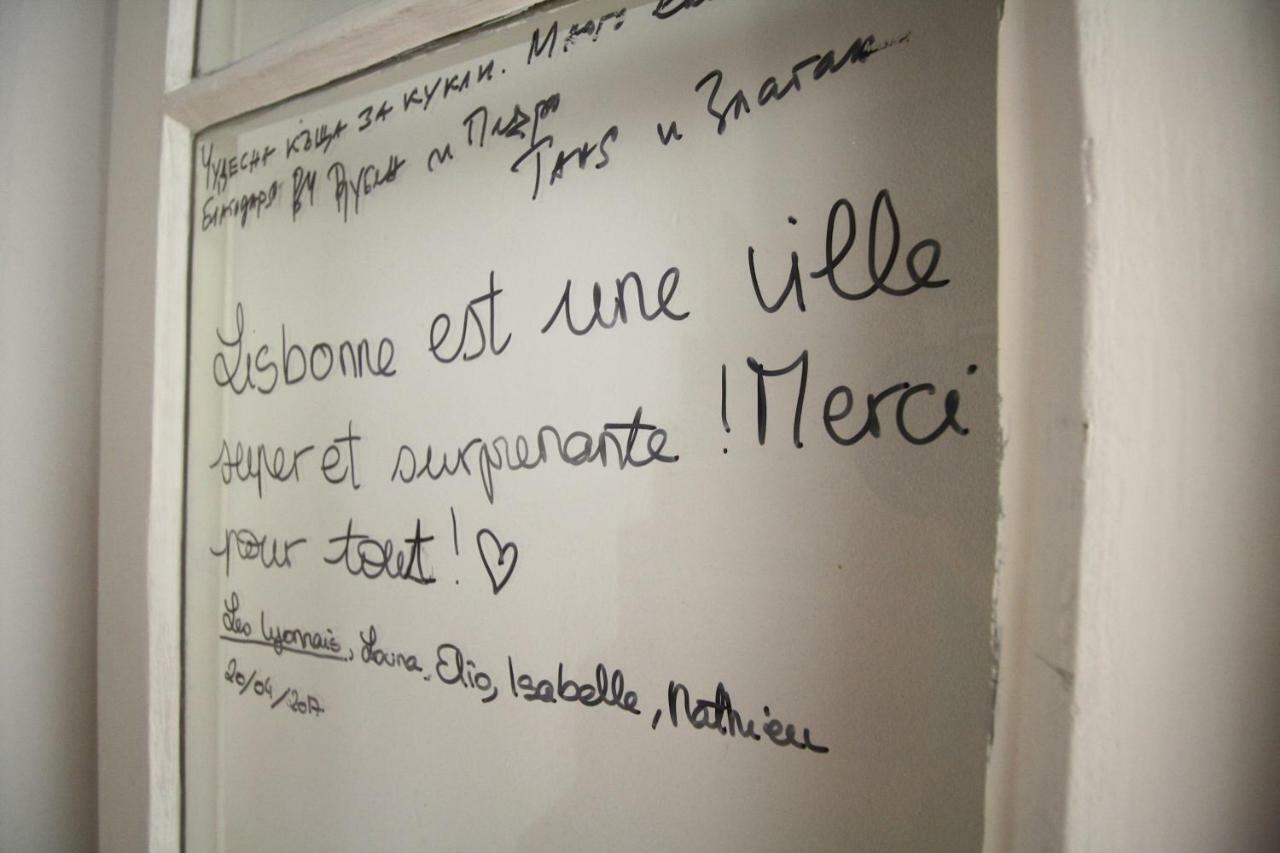 Чудесна къща за кукли. Много
Благодаря ви Рубен и Педро
Таня и Златан
Lisbonne est une ville
super et surprenante ! Merci
pour tout ! ♡
Les lyonnais, Louna, Elio, Isabelle, Mathieu
20/04/2017